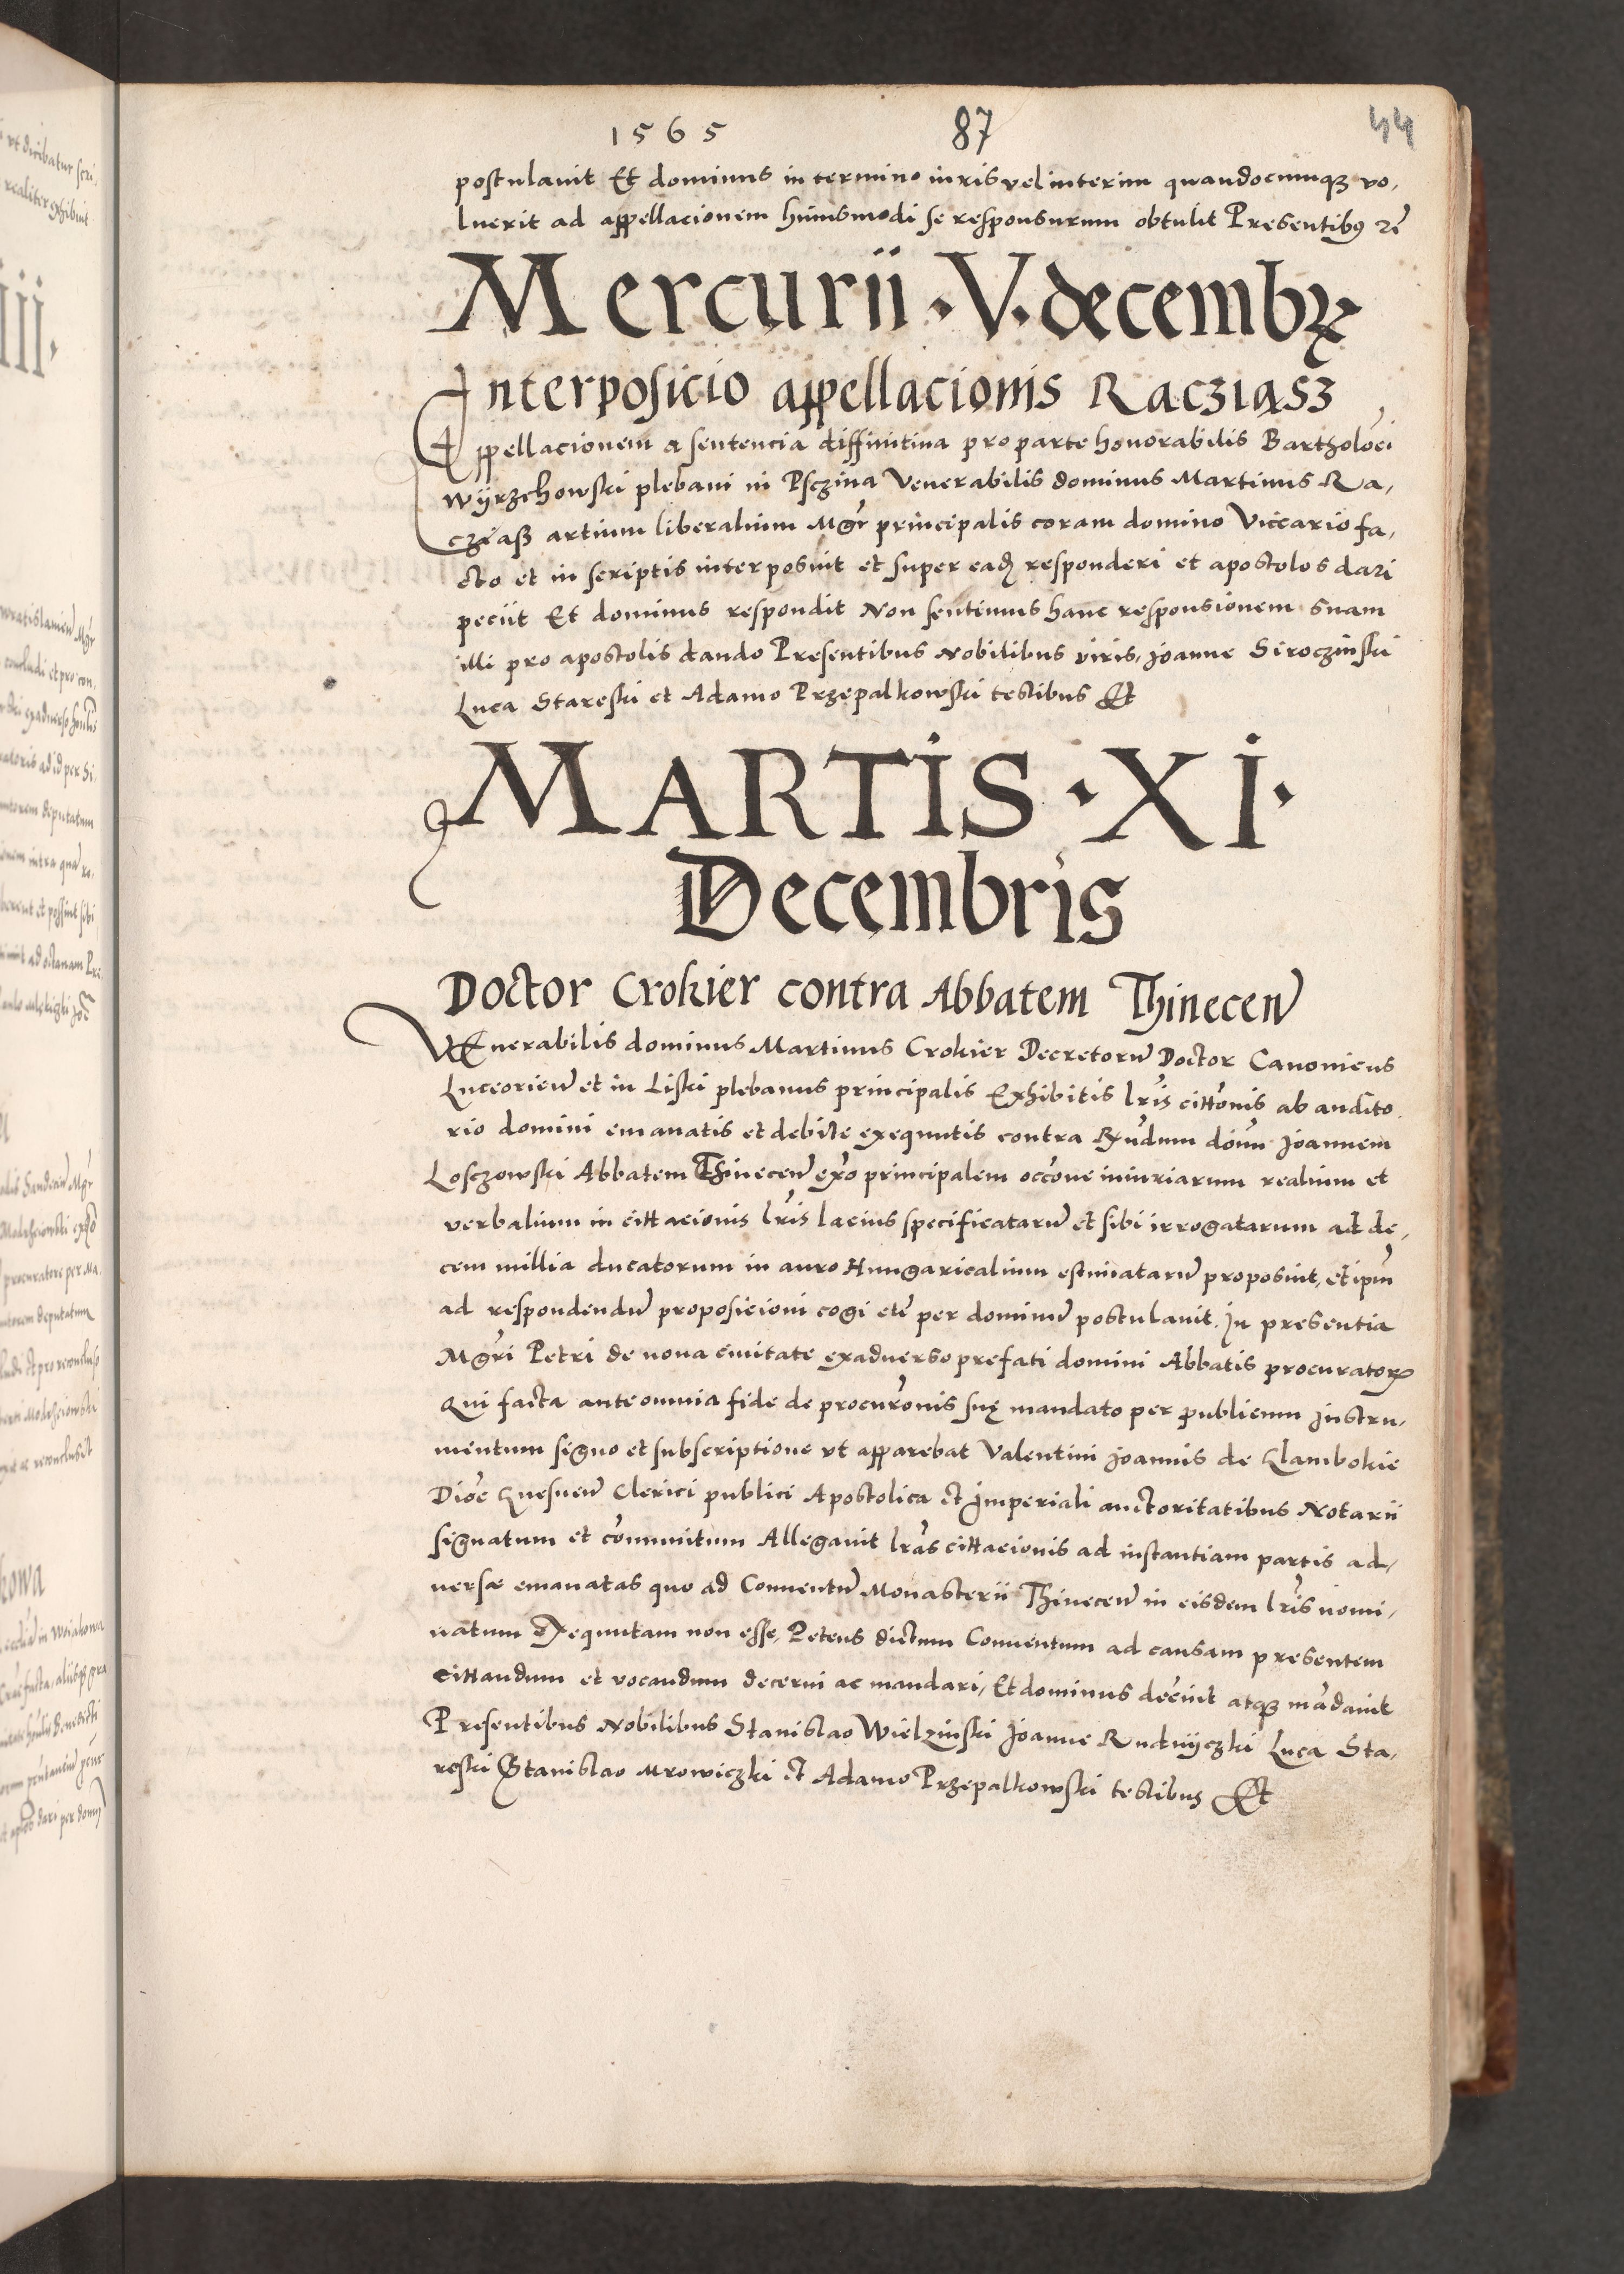 1565 87 44
postulavit Et dominus in termino iuris vel interim quandocumq3 vo,
luerit ad appellacionem huiusmodi se responsurum obtulit Presentib9 rc̃
Mercurii · V · decembꝝ
Interposicio appellacionis Racziąsz
Appellacionem a sentencia diffinitiua pro parte honorabilis Bartholoẽi
Wÿrzchowski plebani in Psczina Venerabilis dominus Martinus Ra,
cziaß artium liberalium Mgr̃ principalis coram domino Viccario fa,
cto et in scriptis interposuit et super eadȝ responderi et apostolos dari
peciit Et dominus respondit Non sentimus hanc responsionem suam
illi pro apostolis dando Presentibus Nobilibus viris, Joanne Siroczinski
Luca Stareski et Adamo Przepalkowski testibus Et
MARTIS · XI ·
Decembris
Doctor Crokier contra Abbatem Thinecen̄
VEnerabilis dominus Martinus Crokier Decretorū Doctor Canonicus
Luceorien̄ et in Liski plebanus principalis Exhibitis lr̃is citt̃onis ab audito,
rio domini emanatis et debite exequutis contra Rx̃ndum dõm̃ Joannem
Losczowski Abbatem Thinecen̄ ex̃o principalem occõne iniuriarum realium et
verbalium in cittacionis lr̃is lacius specificatarū et sibi irrogatarum ad de,
cem millia ducatorum in auro Hungaricalium estimatarū proposuit, et ip̃m
ad respondendū proposicioni cogi etc̃ per dominū postulauit. In presentia
Mgr̃i Petri de noua ciuitate exaduerso prefati domini Abbatis procuratorꝭ
Qui facta ante omnia fide de procurõnis suę mandato per publicum Instru,
mentum signo et subscriptione vt apparebat Valentini Joannis de Glambokie
Dioc̃ Gnesnen̄ Clerici publici Apostolica et Imperiali auctoritatibus Notarii
signatum et cõmunitum Allegauit lr̃as cittacionis ad instantiam partis ad,
versæ emanatas quo ad Conuentū Monasterii Thinecen̄ in eisdem lr̃is nomi,
natum Exequutam non esse, Petens dictum Conuentum ad causam presentem
cittandum et vocandum decerni ac mandari, Et dominus decr̃uit atq3 mãdauit
Presentibus Nobilibus Stanislao Wielzinski Joanne Rudnÿczki Luca Sta,
reski Stanislao Mrowiczki et Adamo Przepalkowski testibus Et